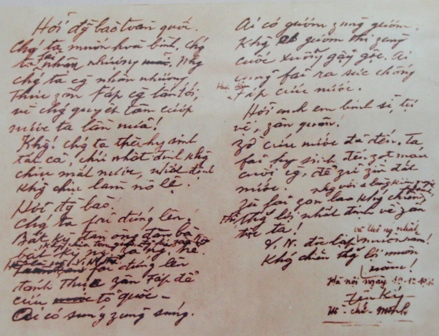 Hỡi đg̀ bào toàn quốc.
Chg ta muốn hoà bình, chg
ta nhân nhượng. Nhg
chg ta cg nhân nhượng
thực zân Fáp cg lấn tới,
vì chg quyết tâm cướp
nước ta lần nữa!
Khg! chg ta thà hy sinh
tất cả, chứ nhất định khg
chịu mất nước, nhất định
khg chịu làm nô lệ.
Hỡi đg bào.
Chg ta fải đứng lên.
Bất kỳ đàn ông đàn bà,
fải đứng lên
đánh thực zân Fáp để
cứu tổ quốc –
Ai có súng zùng súng.
Ai có gươm zùng gươm.
Khg có gươm thì zùng
cuốc xuổng gậy gộc. Ai
cũng fải ra sức chống
Fáp cứu nước.
Hỡi anh em binh sĩ, tự
vệ, zân quân!
Zờ cứu nước đã đến, ta
fải hy sinh đến zọt máu
cuối cg, để zữ zìn đất
nước!
Zù fải zan lao khg chiến,
thắng lợi nhất định về zân
tộc ta!
V. N. độc lập muôn năm!
và thống nhất
Khg chiến thg lợi muôn
năm!
Hà nội ngày
Hồ chí Minh